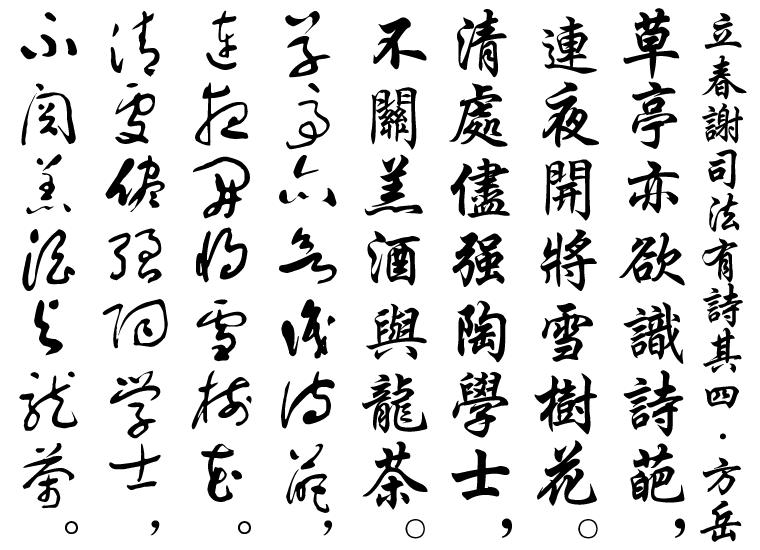 立春謝司法有詩其四·方岳
草亭亦欲識詩葩，
連夜開將雪樹花。
清處儘强陶學士，
不關羔酒與龍茶。
草亭亦欲識詩葩，
連夜開將雪樹花。
清處儘强陶學士，
不關羔酒與龍茶。